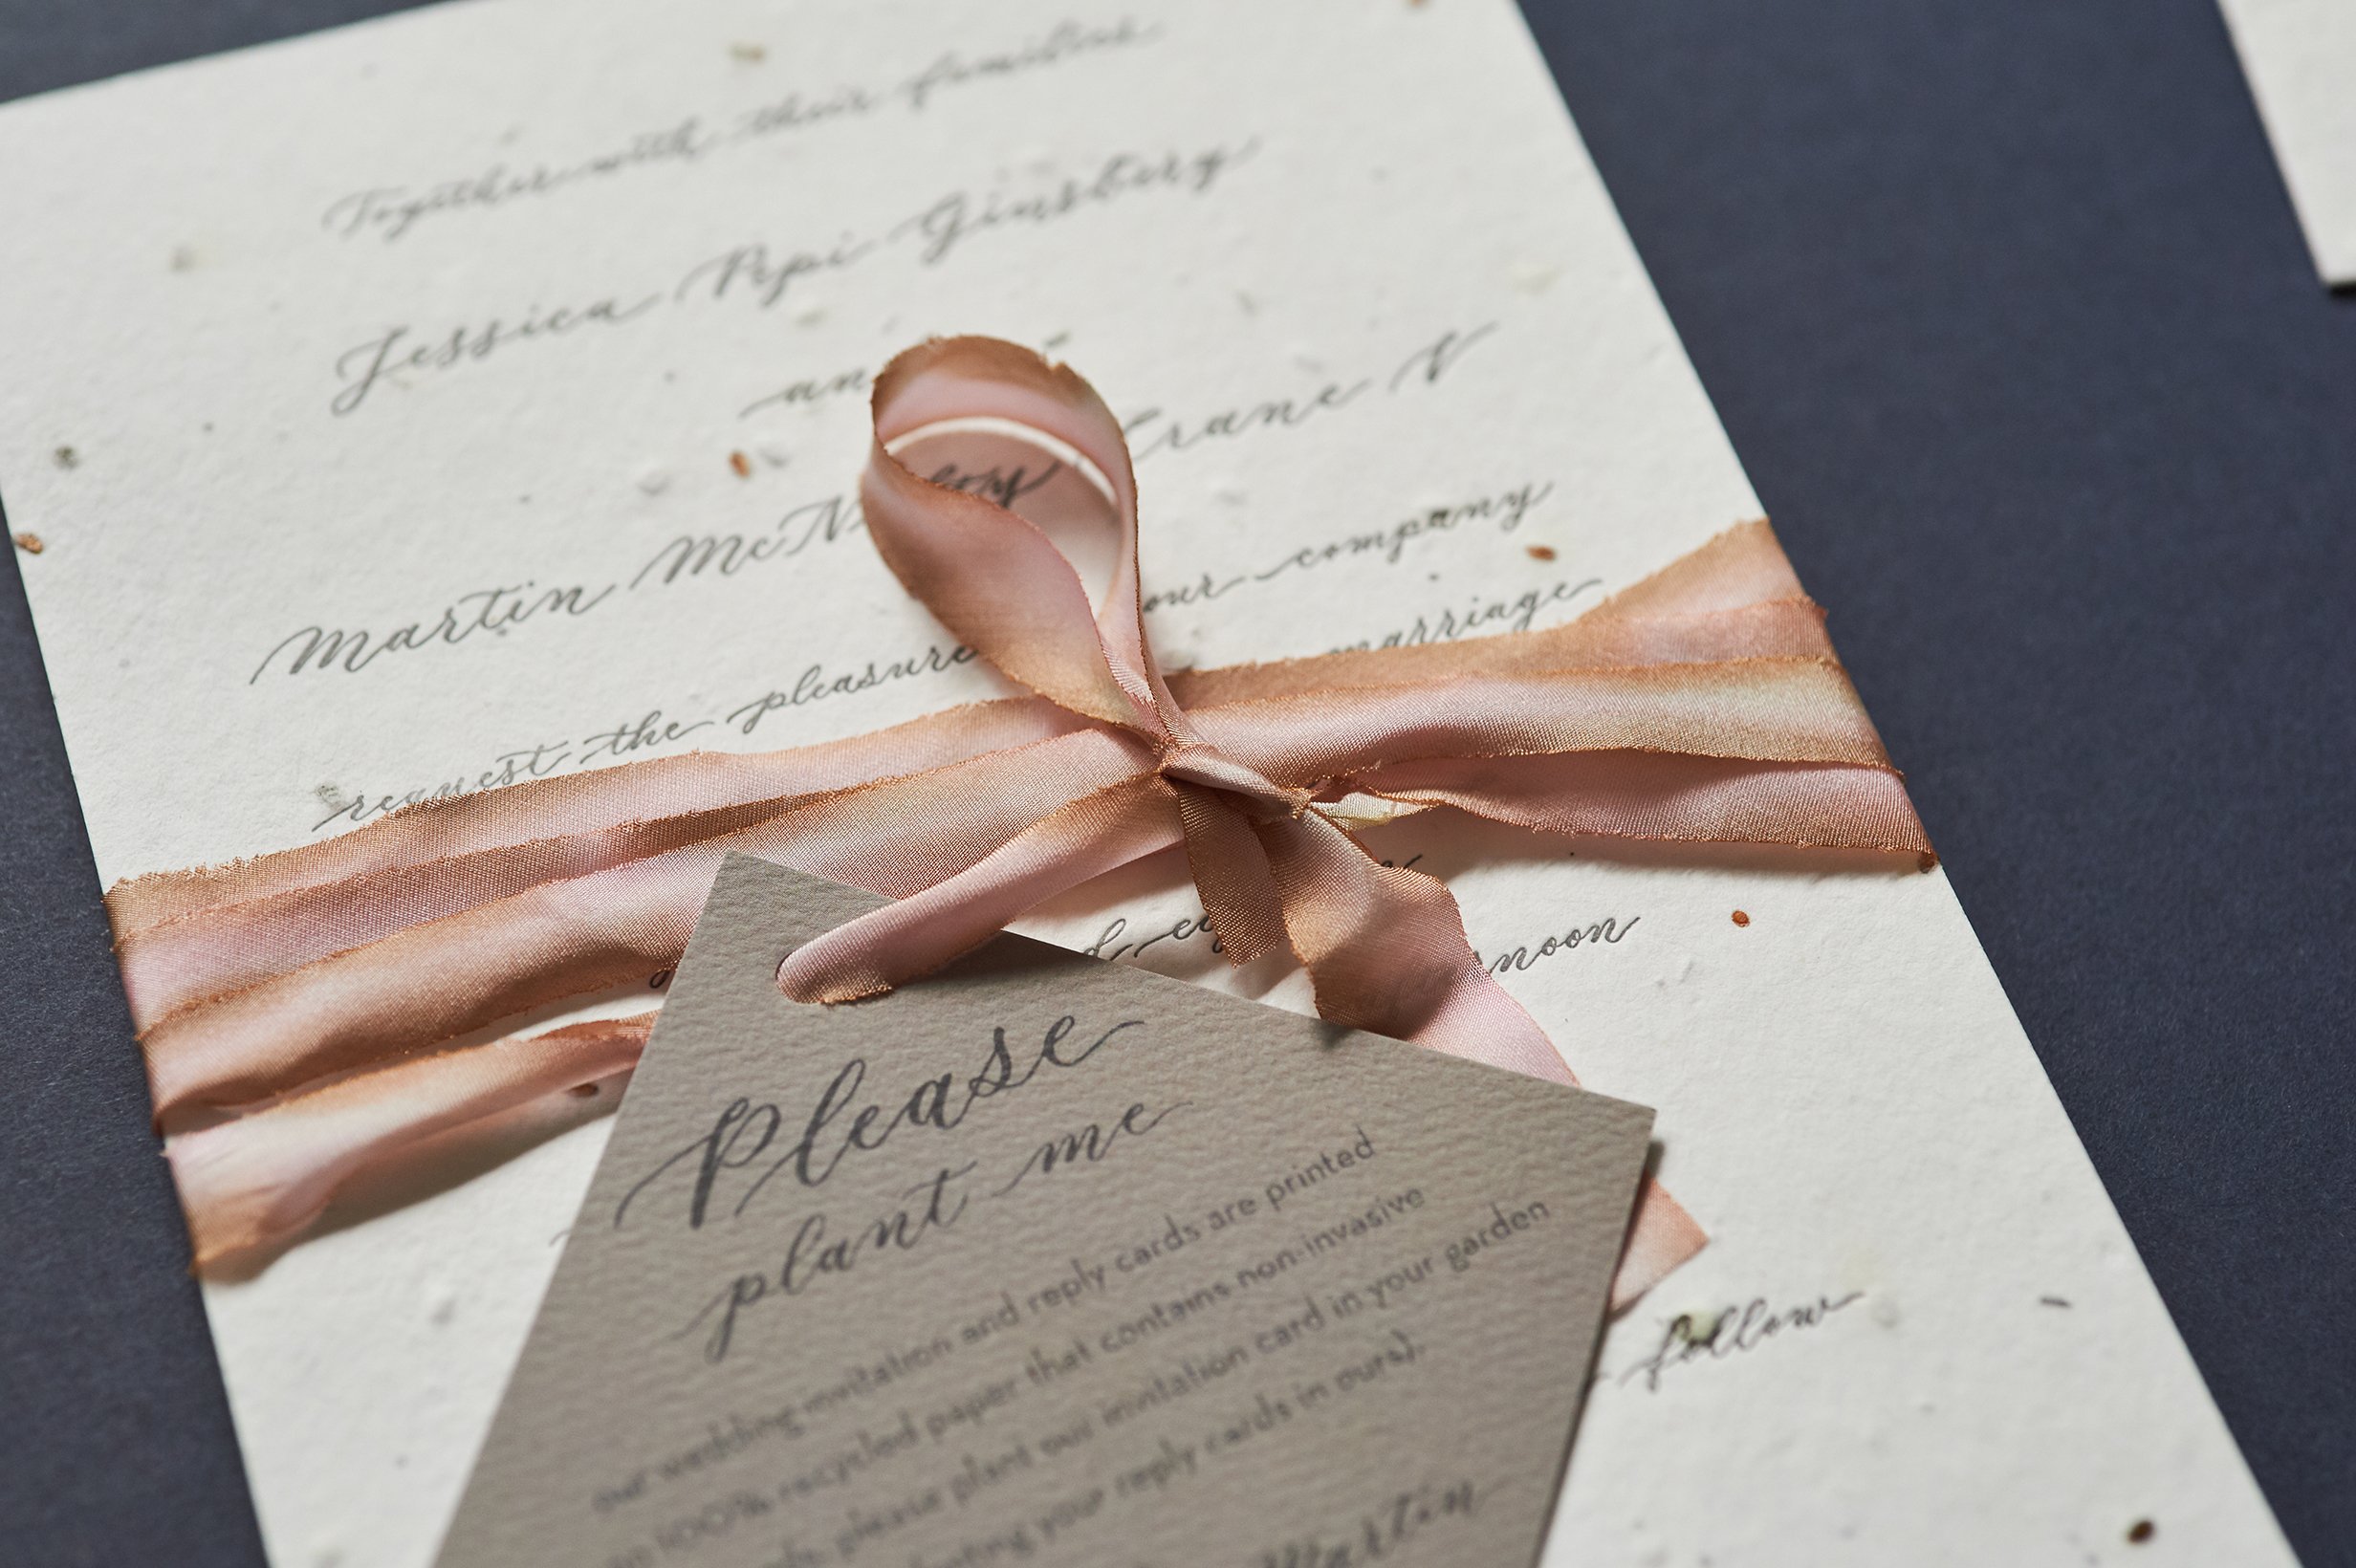 Together with their families
Jessica Pepi Ginsberg
an
Martin McN loy Crane V
request the pleasure our company
marriage
noon
follow
Please
plant me
our wedding invitation and reply cards are printed
on 100% recycled paper that contains non-invasive
please plant our invitation card in your garden
your reply cards in ours).
Martin